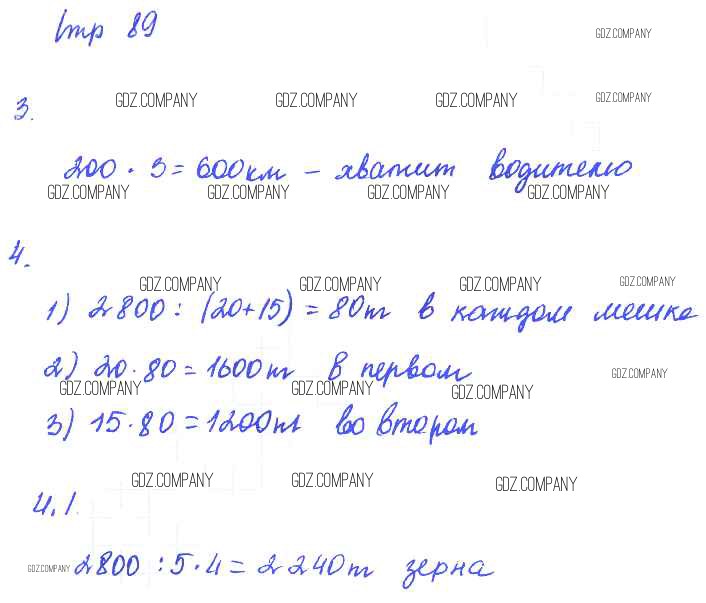 Стр 89
GDZ.COMPANY
3.
GDZ.COMPANY GDZ.COMPANY GDZ.COMPANY GDZ.COMPANY
200 · 3 = 600 км – хватит водителю
GDZ.COMPANY GDZ.COMPANY GDZ.COMPANY GDZ.COMPANY
4.
GDZ.COMPANY GDZ.COMPANY GDZ.COMPANY GDZ.COMPANY
1) 2800 : (20+15) = 80 т в каждом мешке
2) 20 · 80 = 1600 т в первом
GDZ.COMPANY
GDZ.COMPANY GDZ.COMPANY GDZ.COMPANY
3) 15 · 80 = 1200 т во втором
GDZ.COMPANY GDZ.COMPANY GDZ.COMPANY
4.1.
GDZ.COMPANY
2800 : 5 · 4 = 2240 т зерна